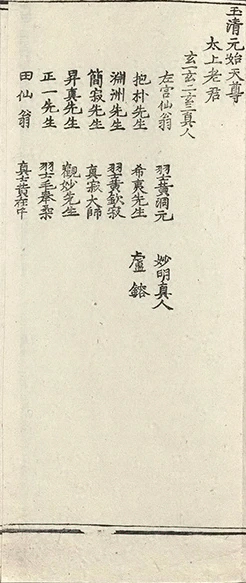 玉清元始天尊
太上老君
玄一玄二玄三真人
左宮仙翁 羽士黃澗元 妙明真人
抱朴先生 希裏先生 盧鎔
淵洲先生 羽士黃欽寂
簡寂先生 真寂大師
昇真先生 觀妙先生
正一先生 羽士毛奉柔
田仙翁 真士黃在中